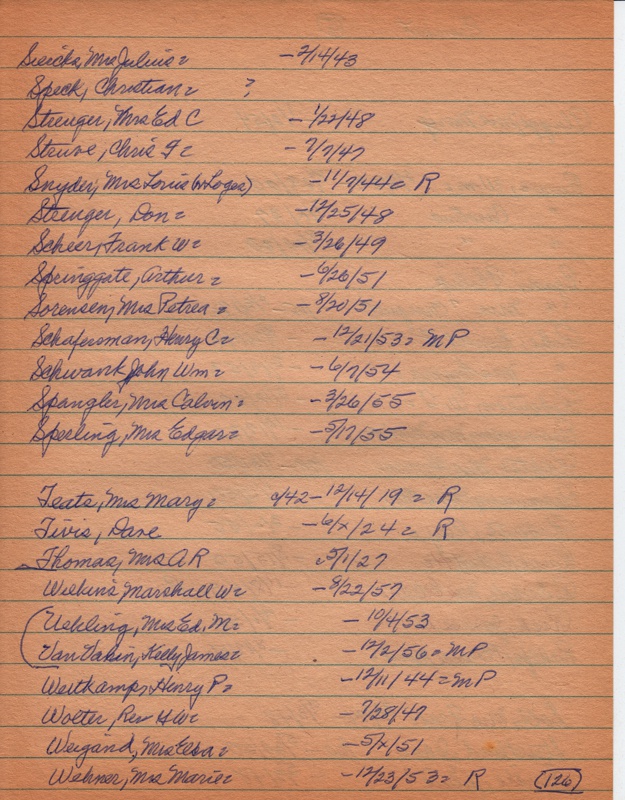 Sierck, Mrs Julius = - 2/14/43
Speck, Christian = ?
Strenger, Mrs Ed C - 1/22/48
Struve, Chris F = - 7/7/47
Snyder, Mrs Louis (or Loges) - 11/7/44 = R
Strenger, Don = - 12/25/48
Scheer, Frank W = - 3/26/49
Springgate, Arthur = - 6/26/51
Sorensen, Mrs Petrea = - 8/20/51
Schafersman, Henry C = - 12/21/53 = MP
Schwank John Wm = - 6/7/54
Spangler, Mrs Calvin = - 3/26/55
Sperling, Mrs Edgar = - 5/17/55
Teats, Mrs Mary = - 12/14/19 = R
Tivis, Dave - 6/x/24 = R
Thomas, Mrs A R 5/1/27
Wilkins Marshall W = - 8/22/57
Uehling, Mrs Ed. M = - 10/4/53
Van Vakin, Kelly James = - 12/2/56 = MP
Weitkamp, Henry P = - 12/11/44 = MP
Wolter, Rev H W = - 7/28/47
Weigand, Mrs Elsa = - 5/x/51
Wehner, Mrs Marie = - 12/23/53 = R (126)